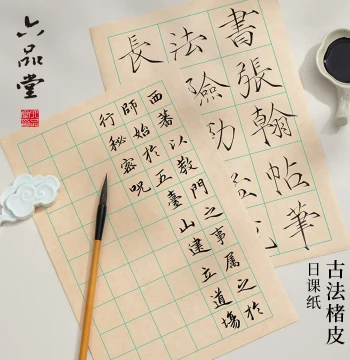 六品堂
書張翰帖筆
法險勁
長
西蕃以教門之事属之於
師始於五臺山建立道場
行秘密咒
古法楮皮
日课纸